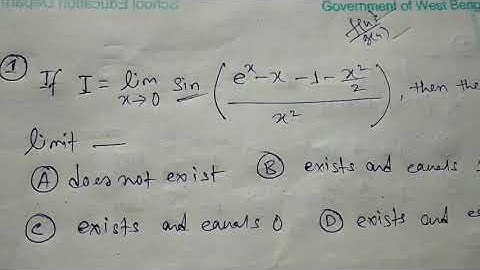 School Education Depar
Government of West Beng
① If I = lim x→0 sin ( (e^x - x - 1 - x²/2) / x² ), then the
limit —
Ⓐ does not exist Ⓑ exists and equals
Ⓒ exists and equals 0 Ⓓ exists and